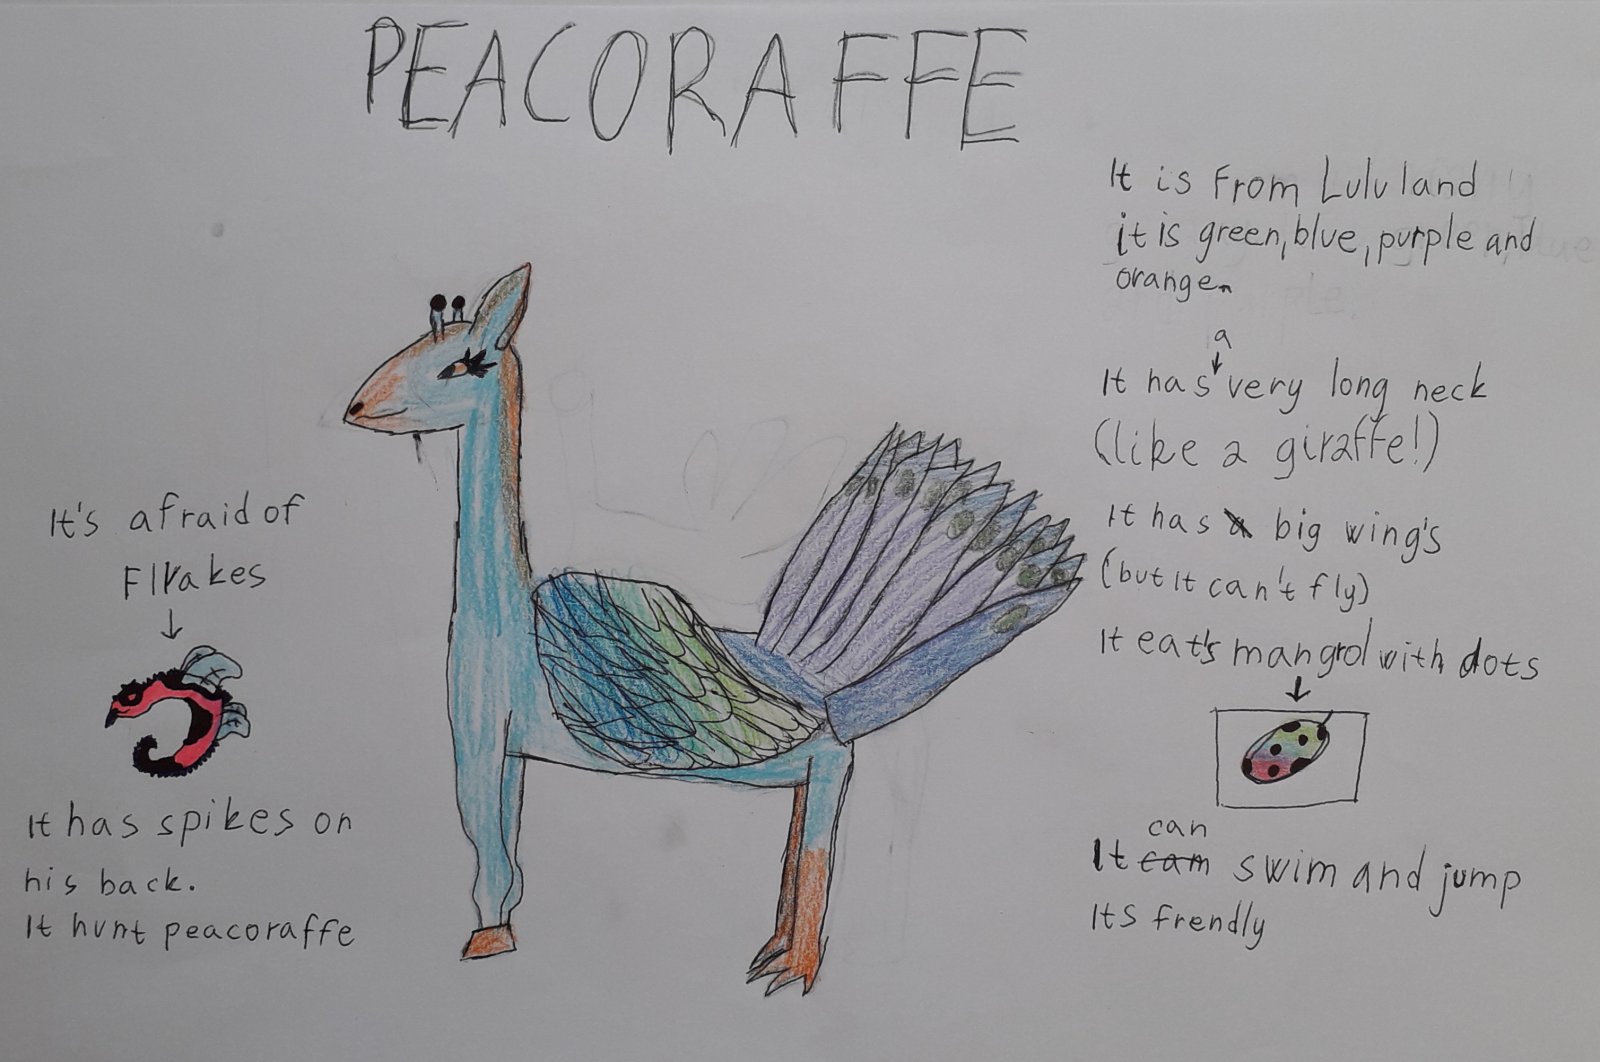 PEACORAFFE
It is from Lulu land
it is green, blue, purple and
orange.
a
It has very long neck
(like a giraffe!)
It has big wing's
(but it can't fly)
It eat's mangrol with dots
can
It cam swim and jump
Its frendly
It's afraid of
Flrakes
It has spikes on
his back.
It hunt peacoraffe